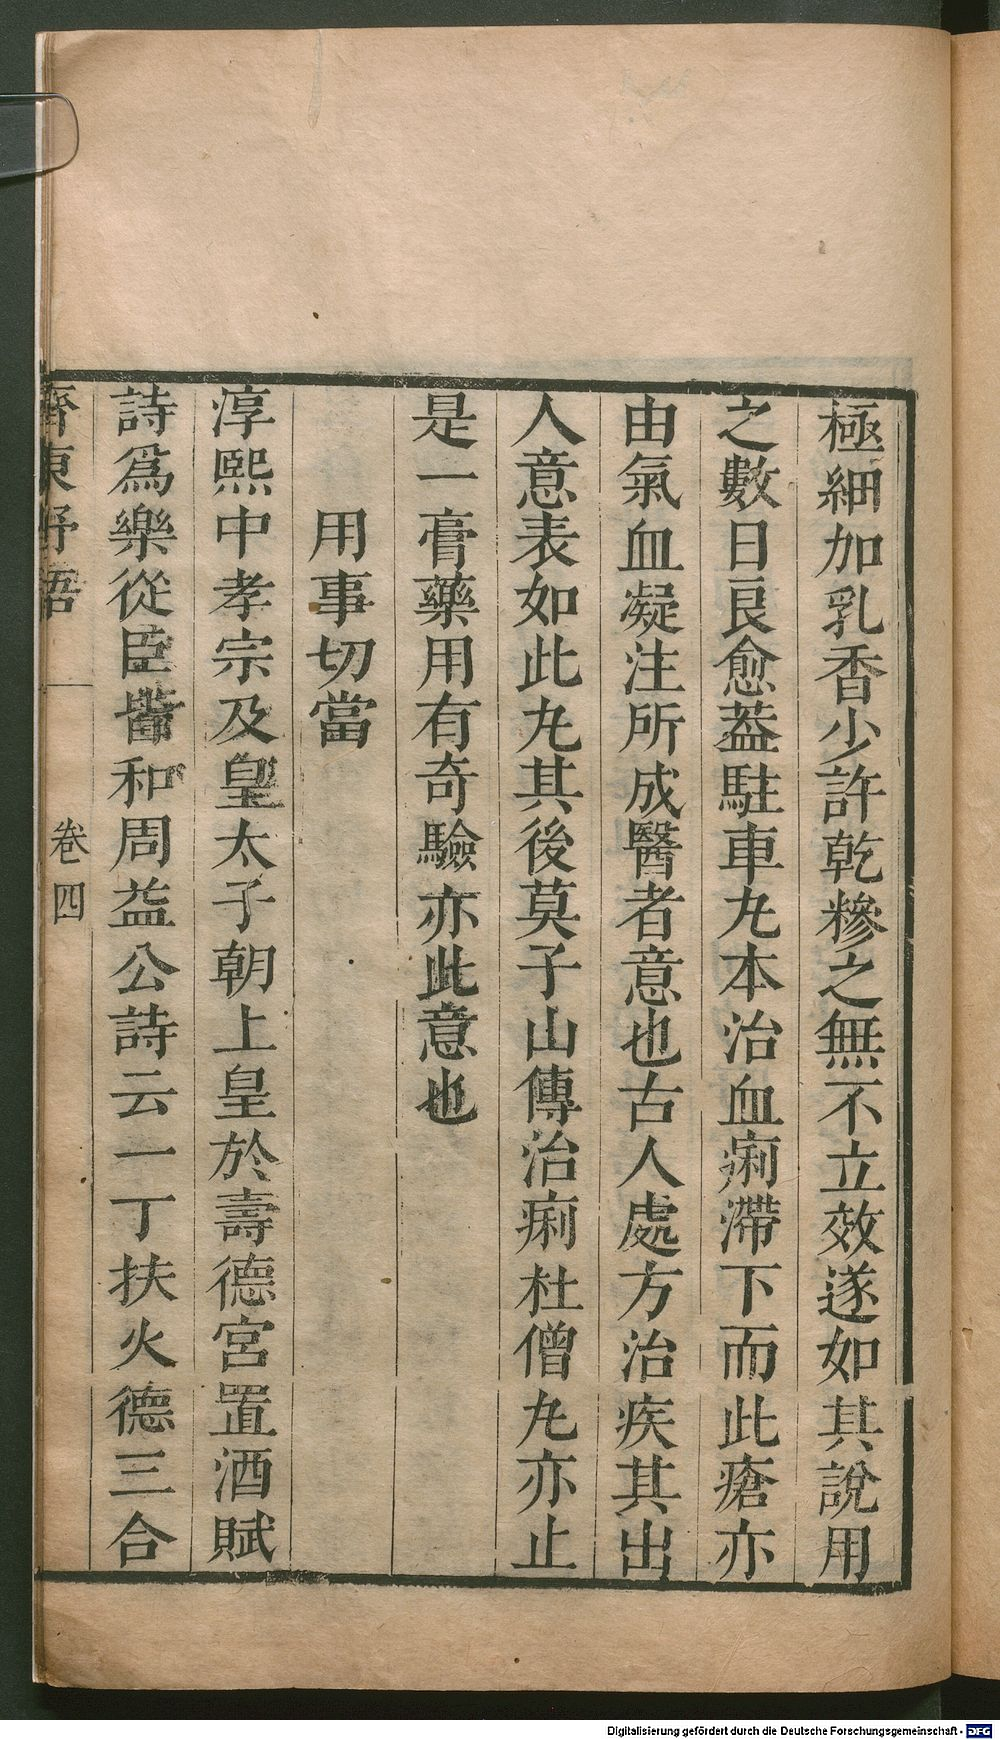 極細加乳香少許乾糝之無不立效遂如其說用
之數日良愈蓋駐車丸本治血痢滯下而此瘡亦
由氣血凝注所成醫者意也古人處方治疾其出
人意表如此丸其後莫子山傳治痢杜僧丸亦止
是一膏藥用有奇驗亦此意也
用事切當
淳熙中孝宗及皇太子朝上皇於壽德宮置酒賦
詩爲樂從臣皆和周益公詩云一丁扶火德三合
齊東野語 卷四
Digitalisierung gefördert durch die Deutsche Forschungsgemeinschaft - DFG